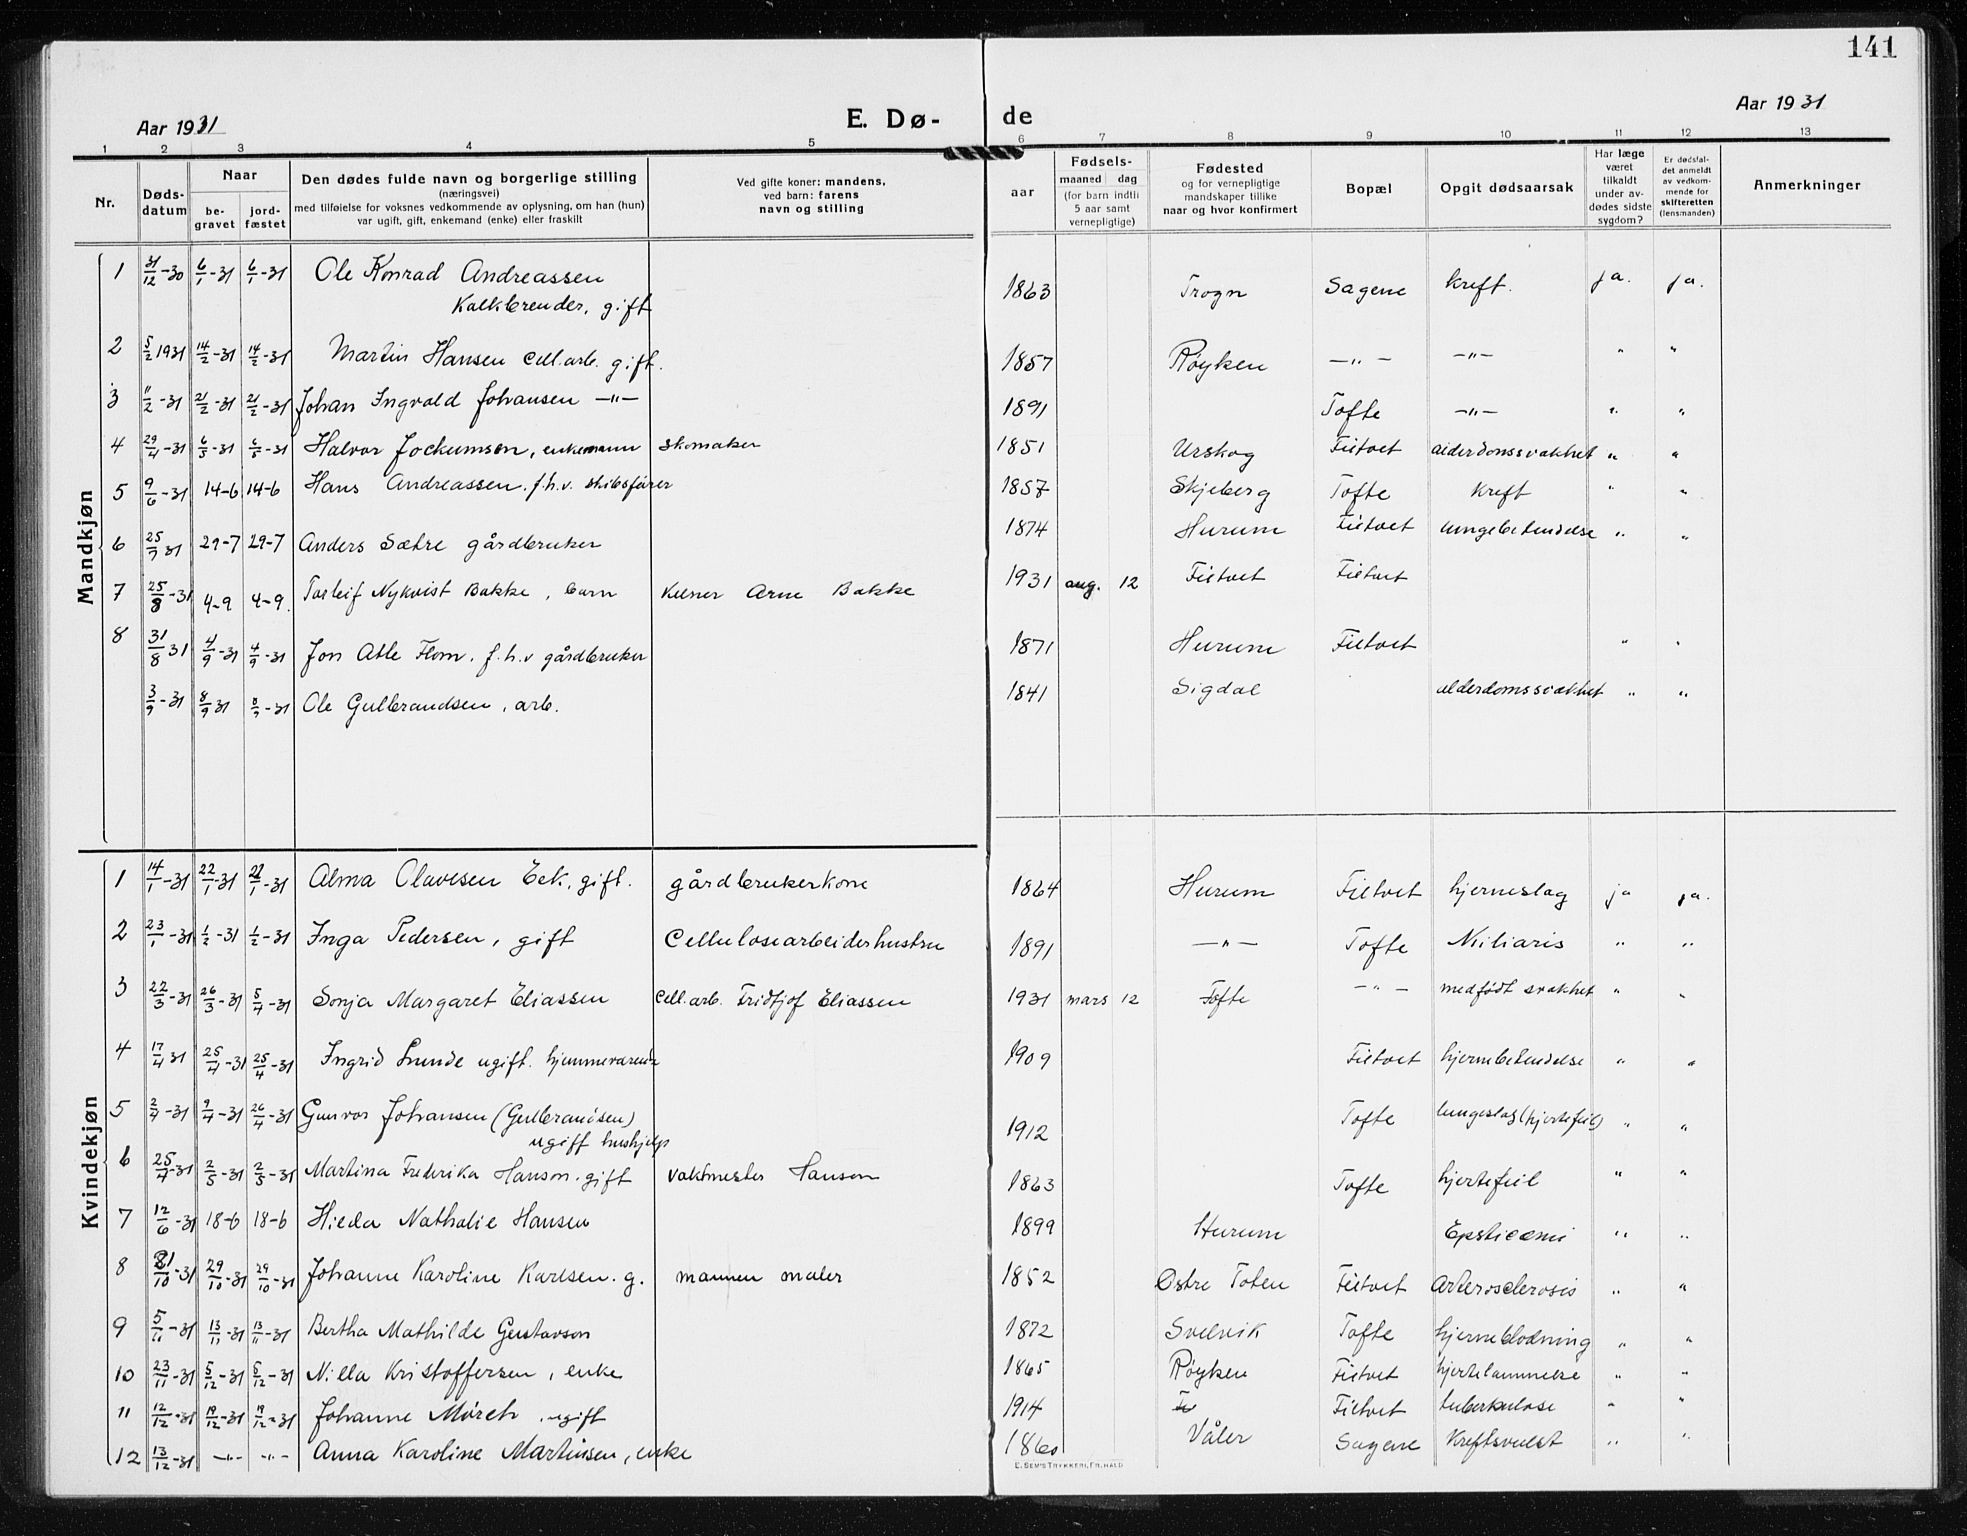 141
Aar 1931
E. Dø-
de
Aar 1931
1 2 3 4 5 6 7 8 9 10 11 12 13
Nr.
Døds-
datum
Naar
be-
gravet
jord-
fæstet
Den dødes fulde navn og borgerlige stilling
(næringsvei)
med tilføielse for voksnes vedkommende av oplysning, om han (hun)
var ugift, gift, enkemand (enke) eller fraskilt
Ved gifte koner: mandens,
ved barn: farens
navn og stilling
aar
Fødsels-
maaned dag
(for barn indtil
5 aar samt
vernepligtige)
Fødested
og for vernepligtige
mandskaper tillike
naar og hvor konfirmert
Bopæl
Opgit dødsaarsak
Har læge
været
tilkaldt
under av-
dødes sidste
sygdom?
Er dødsfal-
det anmeldt
av vedkom-
mende for
skifteretten
(lensmanden)
Anmerkninger
Mandkjøn
1 31/12-30 6/1-31 6/1-31 Ole Konrad Andreassen 1863 Trogn Sagene kreft. ja. ja.
Kalkbrender, gift
2 5/2 1931 14/2-31 14/2-31 Martin Hansen cell.arb. gift. 1857 Røyken —„— —„— „ „
3 11/2-31 21/2-31 21/2-31 Johan Ingvald Johansen —„— 1891 Tofte —„— „ „
4 29/4-31 6/5-31 6/5-31 Halvor Jockumsen, enkemann skomaker 1851 Urskog Filtvet alderdomssvakhet „ „
5 9/6-31 14-6 14-6 Hans Andreassen. f.h.v. skibsfører 1857 Skjeberg Tofte Kreft „ „
6 25/7 31 29-7 29-7 Anders Sætre gårdbruker 1874 Hurum Filtvet lungebetendelse „ „
7 25/8-31 4-9 4-9. Torleif Nykvist Bakke, barn Kelner Arne Bakke 1931 aug. 12 Filtvet Filtvet
8 31/8 31 4/9-31 4/9-31 Jon Atle Flom. f.h.v gårdbruker 1871 Hurum Filtvet „ „
3/9-31 8/9 31 8/9-31 Ole Gulbrandsen, arb. 1841 Sigdal alderdomssvakhet „ „
Kvindekjøn
1 14/1-31 22/1-31 22/1-31 Alma Olavesen Eek, gift. gårdbrukerkone 1864 Hurum Filtvet hjerneslag ja ja.
2 23/1-31 1/2-31 1/2-31 Inga Pedersen, gift Cellulosearbeiderhustru 1891 —„— Tofte Miliaris „ „
3 22/3-31 26/3-31 5/4-31 Sonja Margaret Eliassen Cell.arb. Fridtjof Eliassen 1931 mars 12 Tofte —„— medfødt svakhet „ „
4 17/4 31 25/4-31 25/4-31 Ingrid Lunde ugift. hjemmevarende 1909 Filtvet hjernebetendelse „ „
5 2/4-31 9/4-31 26/4-31 Gunvor Johansen (Gulbrandsen) 1912 Tofte lungeslag (hjertefeil) „ „
ugift hushjelp
6 25/4-31 2/5-31 2/5-31 Martina Frederika Hanson. gift vaktmester Hanson 1863 Tofte hjertefeil „ „
7 12/6-31 18-6 18-6 Hilda Nathalie Hansen 1899 Hurum Epsticæmi „ „
8 21/10-31 29/10-31 29/10-31 Johanne Karoline Karlsen. g. mannen maler 1852 Østre Toten Filtvet Arterosclerosis „ „
9 5/11-31 13/11-31 13/11-31 Bertha Mathilde Gustavson 1872 Svelvik Tofte hjerneblødning „ „
10 23/11-31 5/12-31 5/12-31 Nilla Kristoffersen, enke 1865 Røyken Filtvet hjertelammelse „ „
11 12/12-31 19/12-31 19/12-31 Johanne Mørch ugift 1914 Filtvet tuberkulose „ „
12 13/12-31 —„— —„— Anna Karoline Martinsen, enke 1860 Våler Sagene Kreftsvulst „ „
E. SEM'S TRYKKERI, FR.HALD